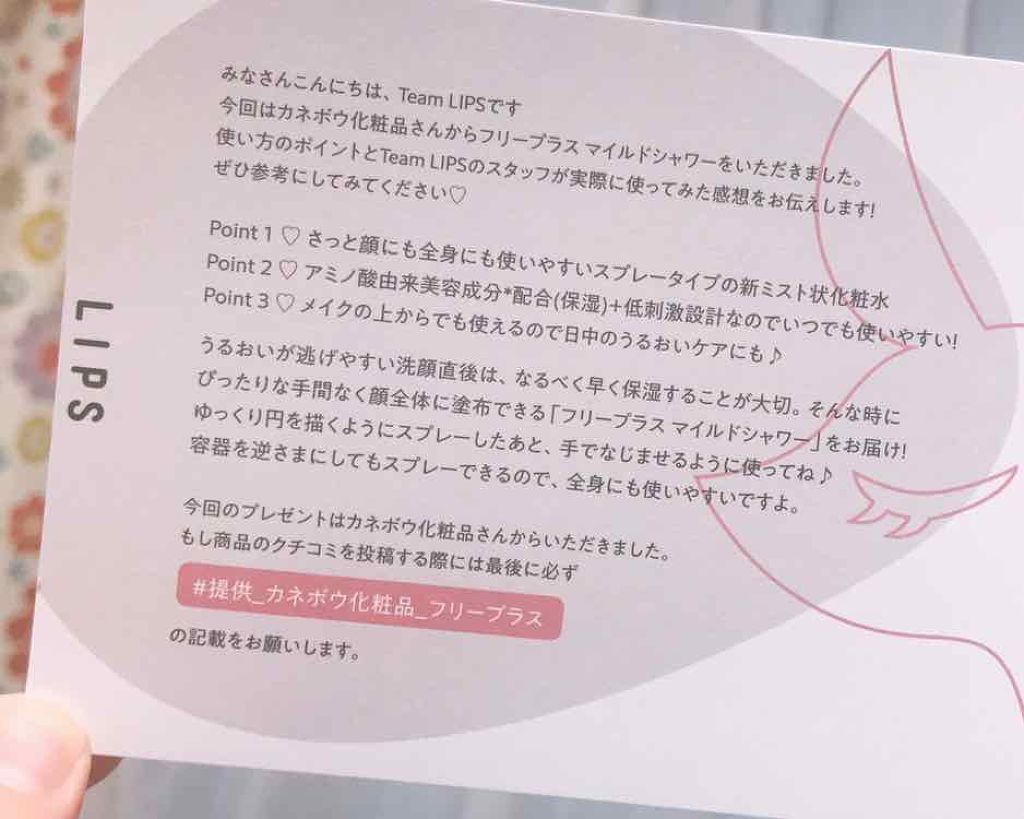 みなさんこんにちは、Team LIPSです
今回はカネボウ化粧品さんからフリープラス マイルドシャワーをいただきました。
使い方のポイントとTeam LIPSのスタッフが実際に使ってみた感想をお伝えします!
ぜひ参考にしてみてください♡
Point 1 ♡ さっと顔にも全身にも使いやすいスプレータイプの新ミスト状化粧水
Point 2 ♡ アミノ酸由来美容成分*配合(保湿)+低刺激設計なのでいつでも使いやすい!
Point 3 ♡ メイクの上からでも使えるので日中のうるおいケアにも♪
うるおいが逃げやすい洗顔直後は、なるべく早く保湿することが大切。そんな時に
ぴったりな手間なく顔全体に塗布できる「フリープラス マイルドシャワー」をお届け!
ゆっくり円を描くようにスプレーしたあと、手でなじませるように使ってね♪
容器を逆さまにしてもスプレーできるので、全身にも使いやすいですよ。
今回のプレゼントはカネボウ化粧品さんからいただきました。
もし商品のクチコミを投稿する際には最後に必ず
#提供_カネボウ化粧品_フリープラス
の記載をお願いします。
LIPS